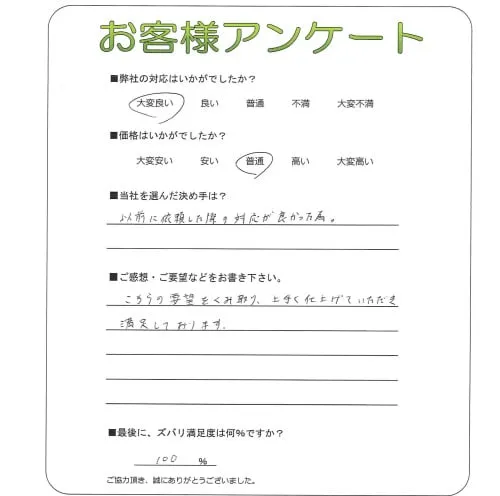 お客様アンケート
■弊社の対応はいかがでしたか？
大変良い 良い 普通 不満 大変不満
■価格はいかがでしたか？
大変安い 安い 普通 高い 大変高い
■当社を選んだ決め手は？
以前に依頼した際の対応が良かった為。
■ご感想・ご要望などをお書き下さい。
こちらの要望をくみ取り、上手く仕上げていただき
満足しております。
■最後に、ズバリ満足度は何%ですか？
100 %
ご協力頂き、誠にありがとうございました。